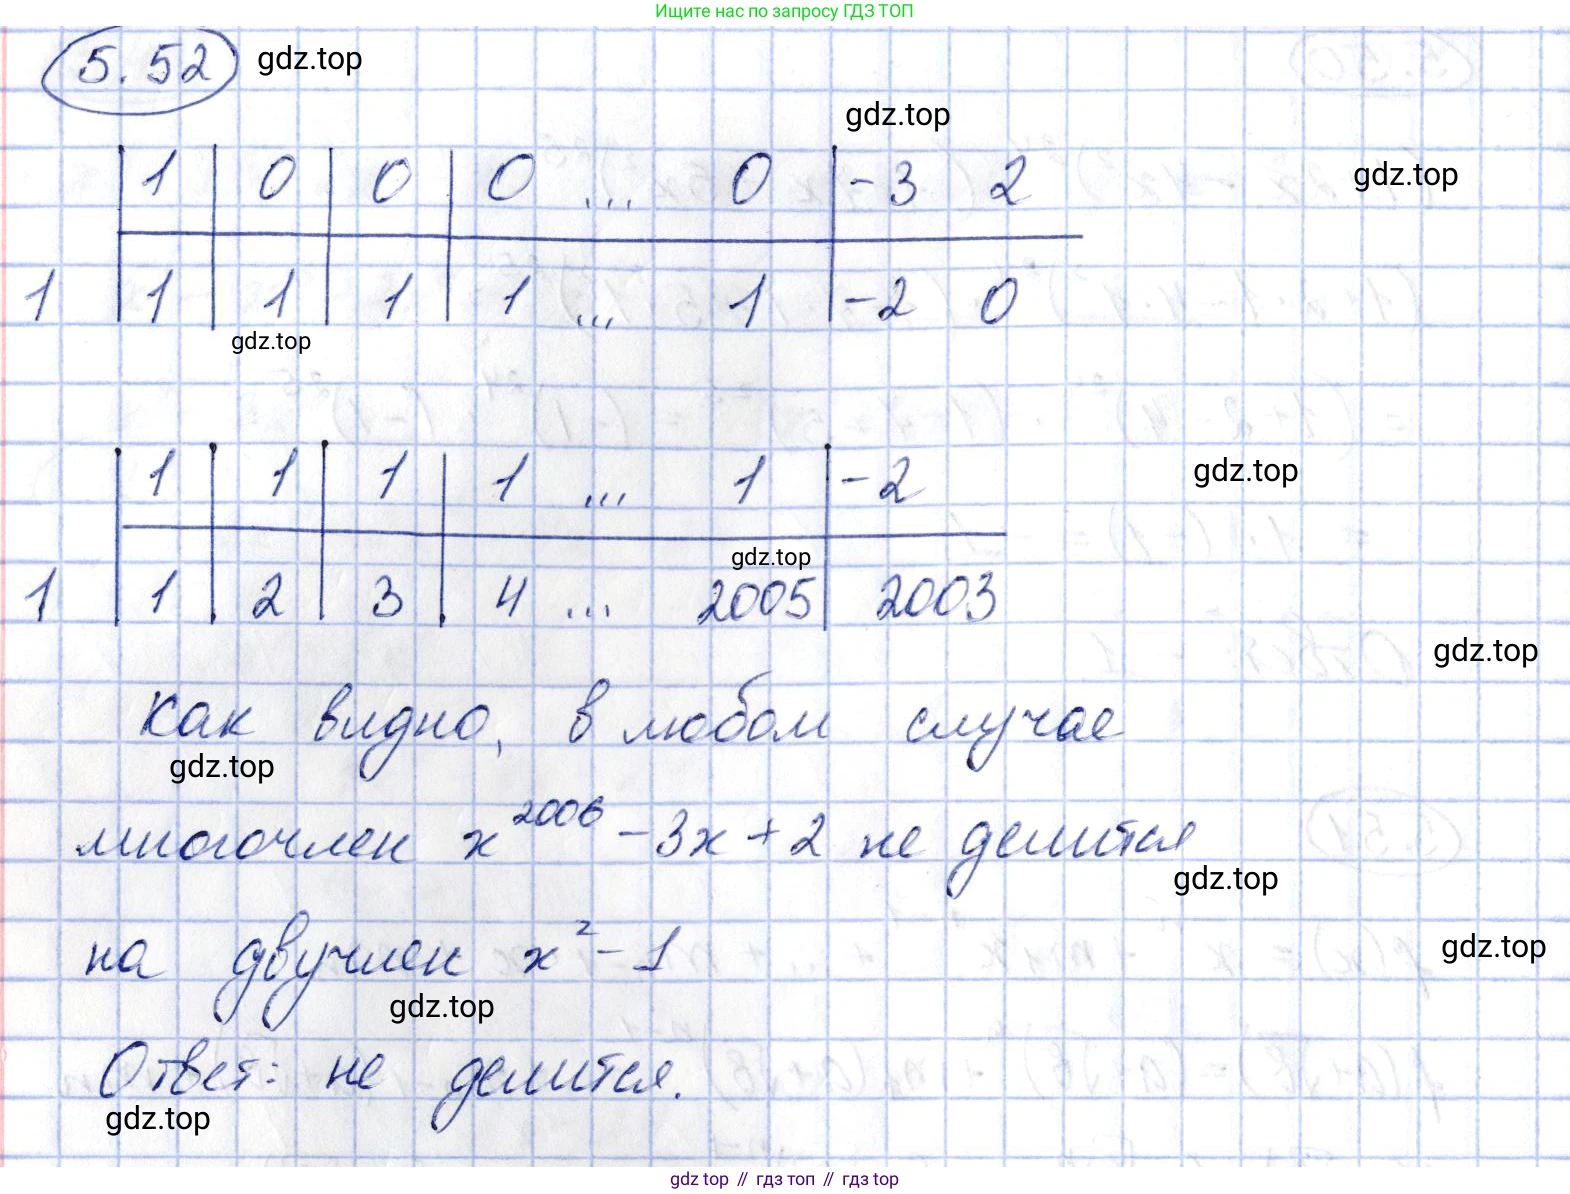 Ищите нас по запросу ГДЗ ТОП
5.52 gdz.top
gdz.top
1 0 0 0 ... 0 -3 2 gdz.top
1 1 1 1 1 ... 1 -2 0
gdz.top
1 1 1 1 ... 1 -2 gdz.top
gdz.top
1 1 2 3 4 ... 2005 2003
gdz.top
Как видно, в любом случае
gdz.top
многочлен x^2006 - 3x + 2 не делится
gdz.top
на двучлен x² - 1 gdz.top
gdz.top
Ответ: не делится.
gdz.top
gdz top // гдз топ // гдз top